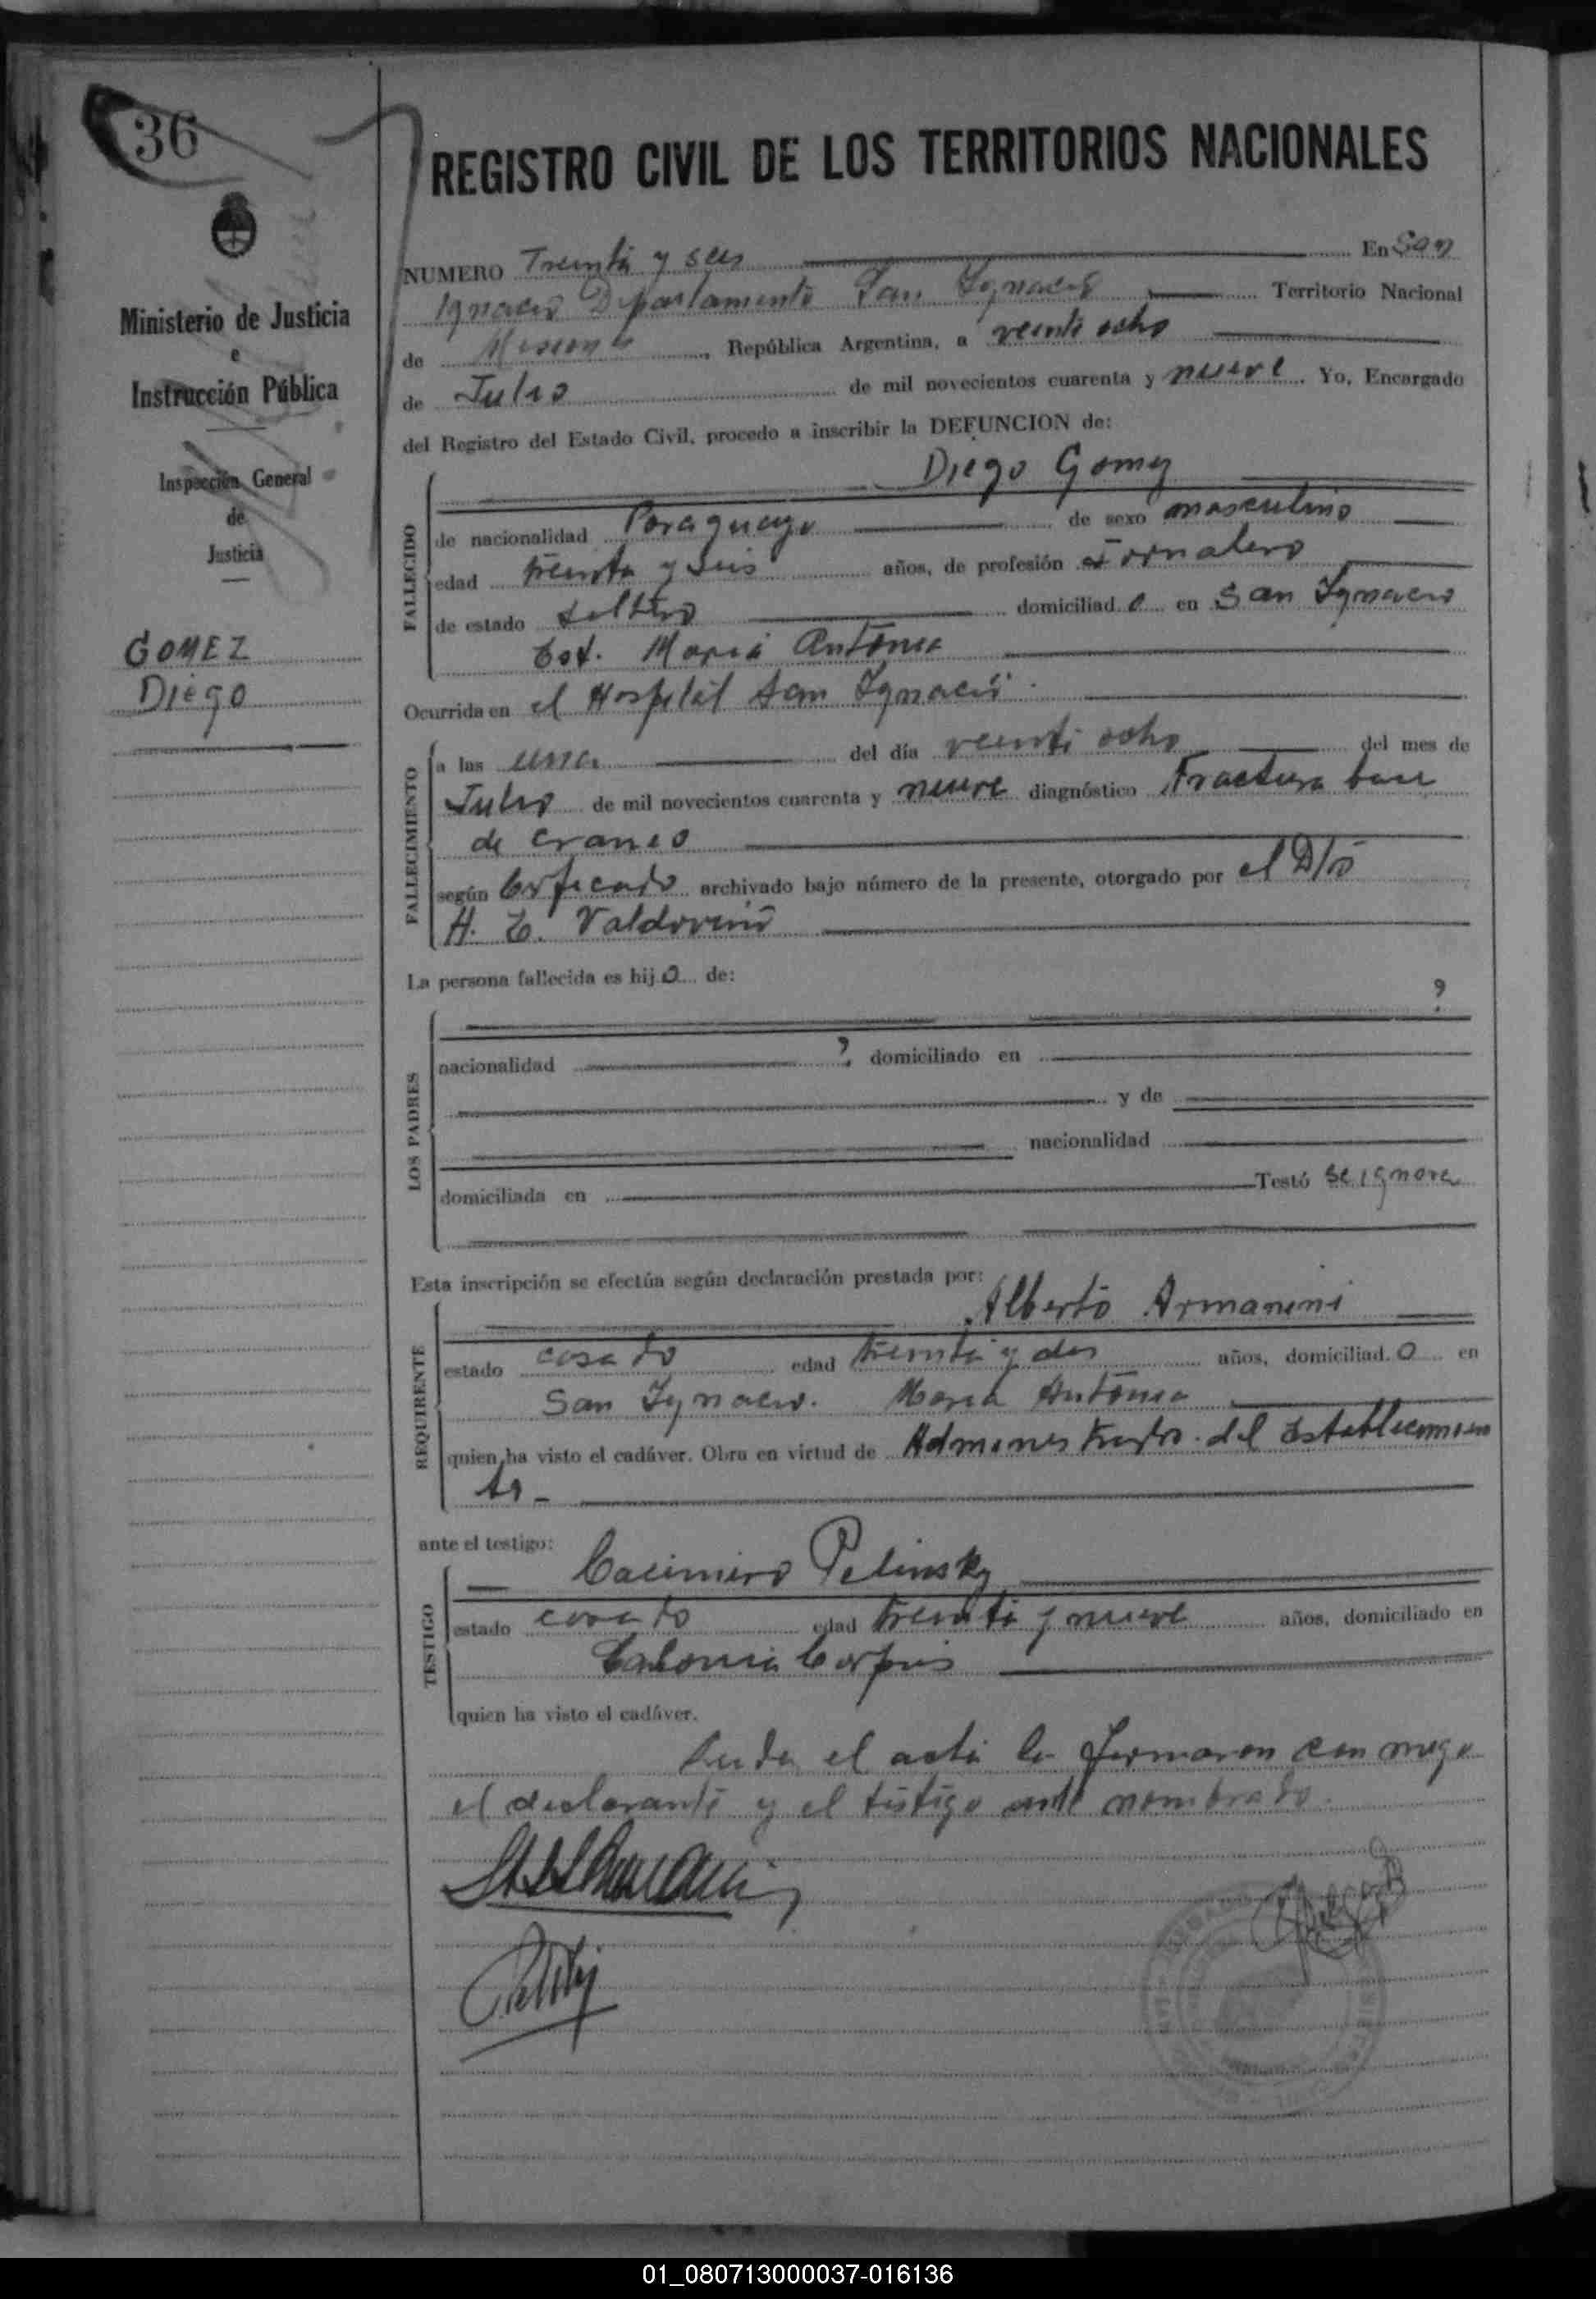 36
REGISTRO CIVIL DE LOS TERRITORIOS NACIONALES
Ministerio de Justicia
e
Instrucción Pública
Inspección General
de
Justicia
GOMEZ
Diego
NUMERO Treinta y seis En San
Ignacio Departamento San Ignacio Territorio Nacional
de Misiones, República Argentina, a veinti ocho
de Julio de mil novecientos cuarenta y nueve. Yo, Encargado
del Registro del Estado Civil, procedo a inscribir la DEFUNCION de:
Diego Gomez
FALLECIDO
de nacionalidad Paraguayo de sexo masculino
edad treinta y seis años, de profesión Jornalero
de estado soltero domiciliad o en San Ignacio
Est. Maria Antonia
Ocurrida en el Hospital San Ignacio.
FALLECIMIENTO
a las una del día veinti ocho del mes de
Julio de mil novecientos cuarenta y nueve diagnóstico Fractura base
de craneo
según Certificado archivado bajo número de la presente, otorgado por el D/r
H. E. Valdovino
La persona fallecida es hij o de:
?
LOS PADRES
nacionalidad ? domiciliado en
y de
nacionalidad
domiciliada en Testó se ignora
Esta inscripción se efectúa según declaración prestada por:
Alberto Armanini
REQUIRENTE
estado casado edad treinta y dos años, domiciliad o en
San Ignacio. Maria Antonia
quien ha visto el cadáver. Obra en virtud de Administrador del Establecimien
to -
ante el testigo:
Casimiro Pelinsky
TESTIGO
estado casado edad treinta y nueve años, domiciliado en
Colonia Corpus
quien ha visto el cadáver.
Leida el acta la firmaron con migo
el declarante y el testigo ante nombrado.
01_080713000037-016136